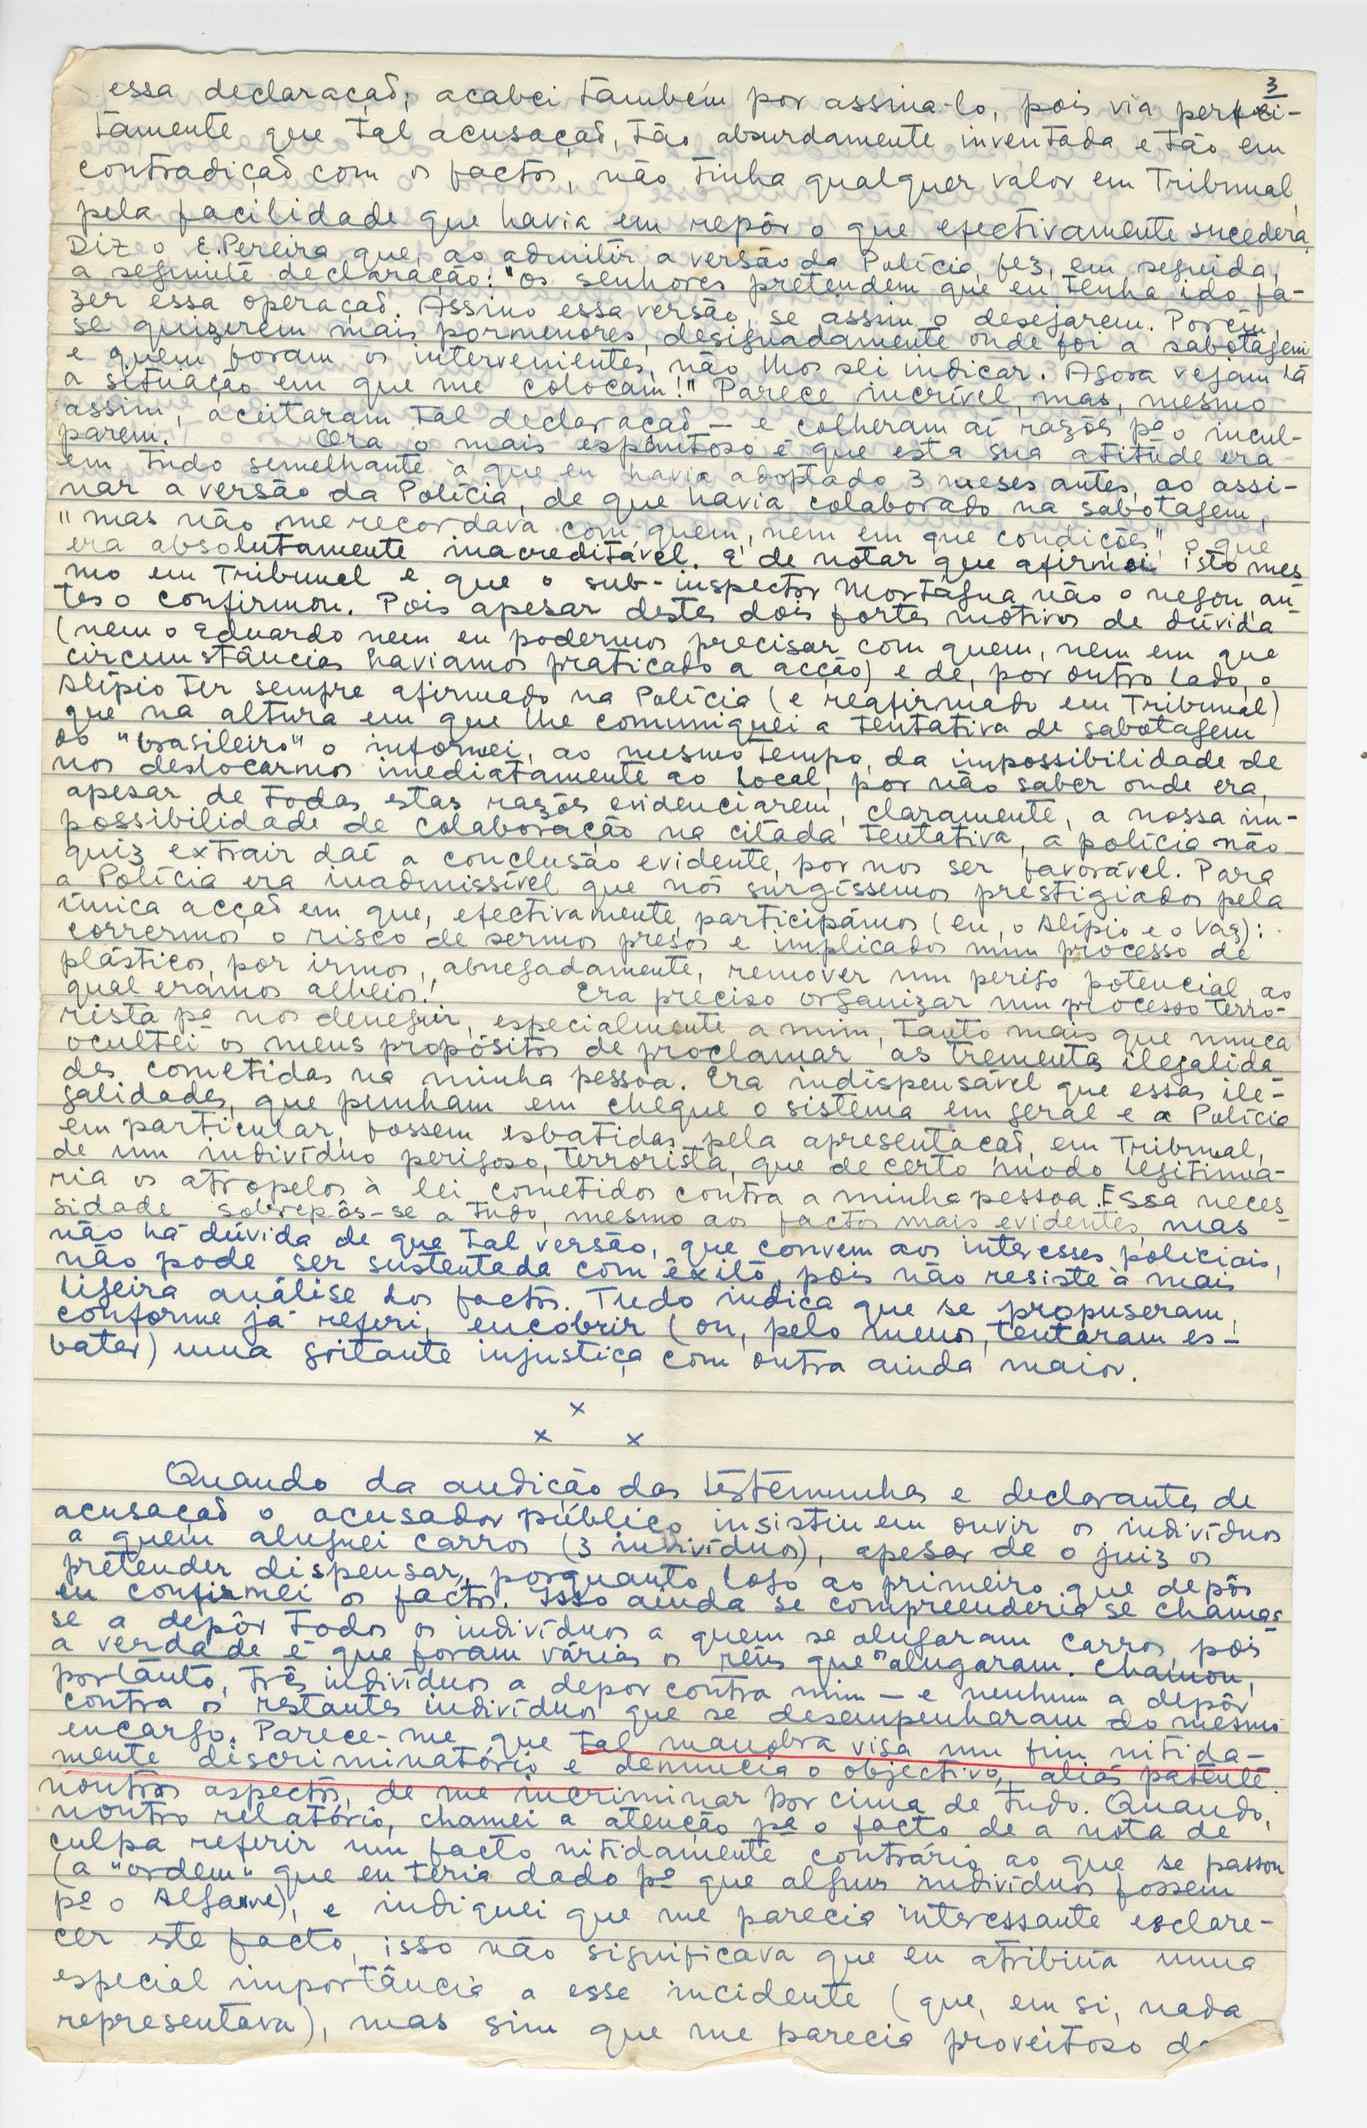 3
essa declaração, acabei também por assina-lo, pois via perfei-
tamente que tal acusação, tão absurdamente inventada e tão em
contradição com os factos, não tinha qualquer valor em Tribunal,
pela facilidade que havia em repôr o que efectivamente sucedera.
Diz o E. Pereira que, ao admitir a versão da Polícia, fez, em seguida,
a seguinte declaração: "Os senhores pretendem que eu tenha ido fa-
zer essa operação. Assino essa versão, se assim o desejarem. Porém,
se quizerem mais pormenores, designadamente onde foi a sabotagem
e quem foram os intervenientes, não lhos sei indicar. Agora vejam lá
a situação em que me colocam!" Parece incrível, mas, mesmo
assim, aceitaram tal declaração — e colheram aí razões pª o incul-
parem. Ora o mais espantoso é que esta sua atitude era
em tudo semelhante à que eu havia adoptado 3 meses antes, ao assi-
nar a versão da Polícia, de que havia colaborado na sabotagem,
"mas não me recordava com quem, nem em que condições", o que
era absolutamente inacreditável. É de notar que afirmei isto mes-
mo em Tribunal e que o sub-inspector Mortágua não o negou, an-
tes o confirmou. Pois apesar destes dois fortes motivos de dúvida
(nem o Eduardo nem eu podermos precisar com quem, nem em que
circunstâncias haviamos praticado a acção) e de, por outro lado, o
Alípio ter sempre afirmado na Polícia (e reafirmado em Tribunal)
que na altura em que lhe comuniquei a tentativa de sabotagem
do "brasileiro" o informei, ao mesmo tempo, da impossibilidade de
nos deslocarmos imediatamente ao local, por não saber onde era,
apesar de todas estas razões evidenciarem, claramente, a nossa im-
possibilidade de colaboração na citada tentativa, a polícia não
quiz extrair daí a conclusão evidente, por nos ser favorável. Para
a Polícia era inadmissível que nós surgíssemos prestigiados pela
única acção em que, efectivamente, participámos (eu, o Alípio e o Vaz):
corrermos o risco de sermos presos e implicados num processo de
plásticos, por irmos, abnegadamente, remover um perigo potencial ao
qual eramos alheios! Era preciso organizar um processo terro-
rista pª nos denegrir, especialmente a mim, tanto mais que nunca
ocultei os meus propósitos de proclamar as tremendas ilegalida
des cometidas na minha pessoa. Era indispensável que essas ile-
galidades, que punham em cheque o sistema em geral e a Polícia
em particular, fossem esbatidas pela apresentação, em Tribunal,
de um indivíduo perigoso, terrorista, que de certo modo legitima-
ria os atropelos à lei cometidos contra a minha pessoa. Essa neces-
sidade sobrepôs-se a tudo, mesmo aos factos mais evidentes, mas
não há dúvida de que tal versão, que convem aos interesses policiais,
não pode ser sustentada com êxito, pois não resiste à mais
ligeira análise dos factos. Tudo indica que se propuseram,
conforme já referi, encobrir (ou, pelo menos, tentaram es-
bater) uma gritante injustiça com outra ainda maior.
x
x x
Quando da audição das testemunhas e declarantes de
acusação o acusador público insistiu em ouvir os indivíduos
a quem aluguei carros (3 indivíduos), apesar de o juiz os
pretender dispensar, porquanto logo ao primeiro que depôs
eu confirmei os factos. Isso ainda se compreenderia se chamas-
se a depôr todos os indivíduos a quem se alugaram carros, pois
a verdade é que foram vários os réus que os alugaram. Chamou,
portanto, três indivíduos a depor contra mim — e nenhum a depôr
contra os restantes indivíduos que se desempenharam do mesmo
encargo. Parece-me que tal manobra visa um fim nitida-
mente discriminatório e denuncia o objectivo, aliás patente
noutros aspectos, de me incriminar por cima de tudo. Quando,
noutro relatório, chamei a atenção pª o facto de a nota de
culpa referir um facto nitidamente contrário ao que se passou
(a "ordem" que eu teria dado pª que alguns indivíduos fossem
pª o Algarve), e indiquei que me parecia interessante esclare-
cer este facto, isso não significava que eu atribuia uma
especial importância a esse incidente (que, em si, nada
representava), mas sim que me parecia proveitoso